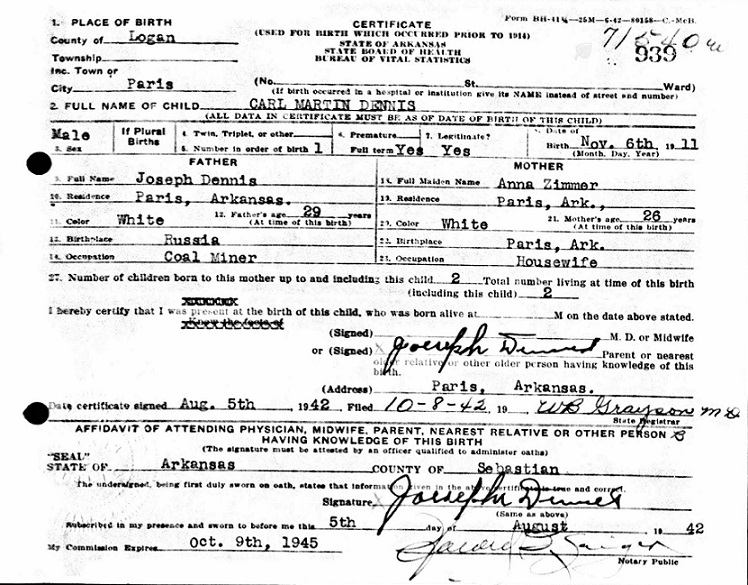 Form BH-41¼-25M-6-42-80158-C.-McB.
1. PLACE OF BIRTH
CERTIFICATE
County of Logan
(USED FOR BIRTH WHICH OCCURRED PRIOR TO 1914)
STATE OF ARKANSAS
Township
STATE BOARD OF HEALTH
BUREAU OF VITAL STATISTICS
939
Inc. Town or
City Paris (No. St. Ward)
(If birth occurred in a hospital or institution give its NAME instead of street and number)
2. FULL NAME OF CHILD CARL MARTIN DENNIS
(ALL DATA IN CERTIFICATE MUST BE AS OF DATE OF BIRTH OF THIS CHILD)
Male
3. Sex
If Plural Births
4. Twin, Triplet, or other
5. Number in order of birth 1
6. Premature
Full term Yes
7. Legitimate?
Yes
Date of
Birth Nov. 6th, 1911
(Month, Day, Year)
FATHER
MOTHER
9. Full Name Joseph Dennis
18. Full Maiden Name Anna Zimmer
10. Residence Paris, Arkansas.
19. Residence Paris, Ark.,
11. Color White 12. Father's age 29 years
(At time of this birth)
20. Color White 21. Mother's age 26 years
(At time of this birth)
13. Birthplace Russia
22. Birthplace Paris, Ark.
14. Occupation Coal Miner
Occupation Housewife
27. Number of children born to this mother up to and including this child 2 Total number living at time of this birth
(including this child) 2
I hereby certify that I was present at the birth of this child, who was born alive at M on the date above stated.
(Signed) M. D. or Midwife
or (Signed) Joseph Dennis Parent or nearest
older relative or other older person having knowledge of this
birth.
(Address) Paris, Arkansas.
Date certificate signed Aug. 5th, 1942, Filed 10-8-42, 19 WB Grayson MD
State Registrar
AFFIDAVIT OF ATTENDING PHYSICIAN, MIDWIFE, PARENT, NEAREST RELATIVE OR OTHER PERSON
HAVING KNOWLEDGE OF THIS BIRTH
(The signature must be attested by an officer qualified to administer oaths)
"SEAL"
STATE OF Arkansas COUNTY OF Sebastian
The undersigned, being first duly sworn on oath, states that information given in the above certificate is true and correct.
Signature Joseph Dennis
(Same as above)
Subscribed in my presence and sworn to before me this 5th day of August 1942
My Commission Expires Oct. 9th, 1945
Notary Public